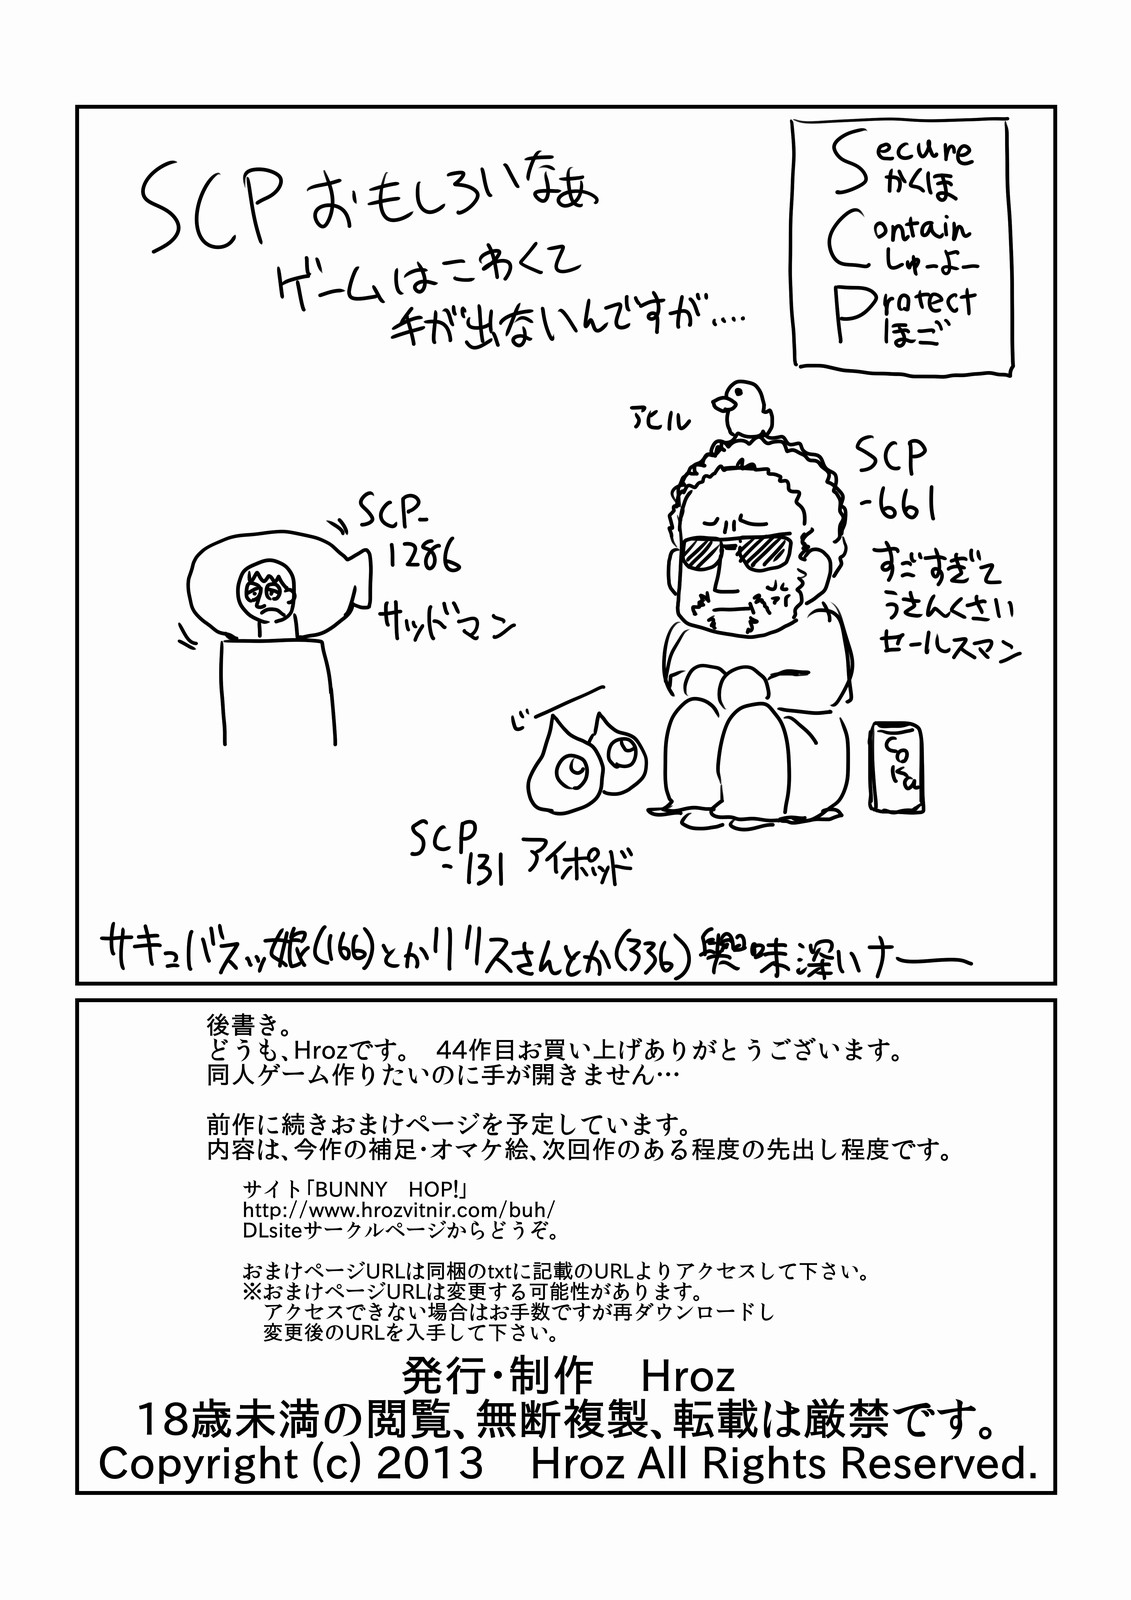 SCPおもしろいなぁ
ゲームはこわくて
手が出ないんですが....
Secure
かくほ
Contain
しゅーよー
Protect
ほご
アヒル
SCP
-661
すごすぎて
うさんくさい
セールスマン
SCP-
1286
サッドマン
じ
COKa
SCP
-131 アイポッド
サキュバスッ娘(166)とかリリスさんとか(336)興味深いナー
後書き。
どうも、Hrozです。 44作目お買い上げありがとうございます。
同人ゲーム作りたいのに手が開きません…
前作に続きおまけページを予定しています。
内容は、今作の補足・オマケ絵、次回作のある程度の先出し程度です。
サイト「BUNNY HOP!」
http://www.hrozvitnir.com/buh/
DLsiteサークルページからどうぞ。
おまけページURLは同梱のtxtに記載のURLよりアクセスして下さい。
※おまけページURLは変更する可能性があります。
アクセスできない場合はお手数ですが再ダウンロードし
変更後のURLを入手して下さい。
発行・制作 Hroz
18歳未満の閲覧、無断複製、転載は厳禁です。
Copyright (c) 2013 Hroz All Rights Reserved.